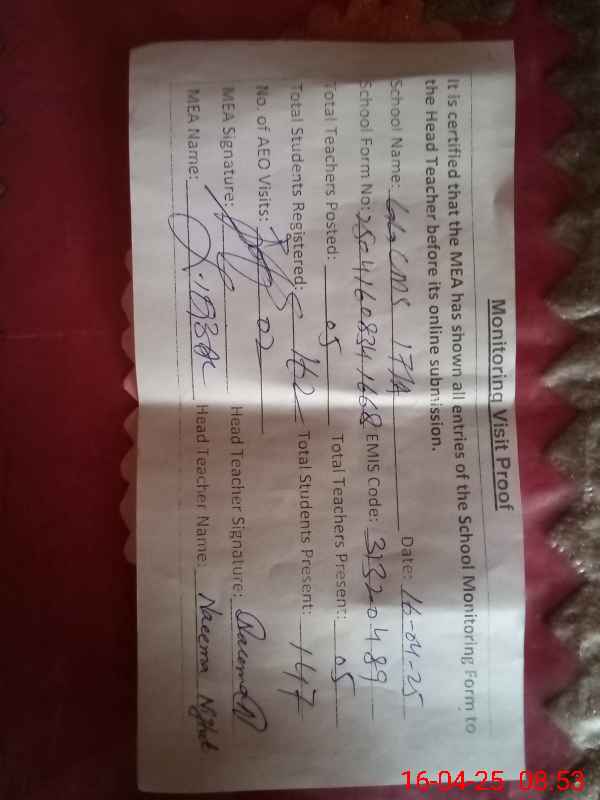 Monitoring Visit Proof
It is certified that the MEA has shown all entries of the School Monitoring Form to
the Head Teacher before its online submission.
School Name: CMS 17/1A Date: 16-04-25
School Form No: 25041608341668 EMIS Code: 31320489
Total Teachers Posted: 05 Total Teachers Present: 05
Total Students Registered: 162 Total Students Present: 147
No. of AEO Visits: 02
MEA Signature: Head Teacher Signature:
MEA Name: Head Teacher Name: Naeema
16-04-25 08:53